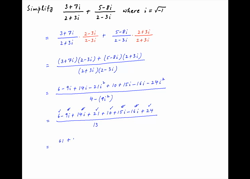 Simplify (3+7i)/(2+3i) + (5-8i)/(2-3i) where i=√-1
= (3+7i)/(2+3i) (2-3i)/(2-3i) + (5-8i)/(2-3i) (2+3i)/(2+3i)
= ((3+7i)(2-3i) + (5-8i)(2+3i))/((2+3i)(2-3i))
= (6-9i+14i-21i²+10+15i-16i-24i²)/(4-(9i²))
= (6-9i+14i+21+10+15i-16i+24)/13
= 61+